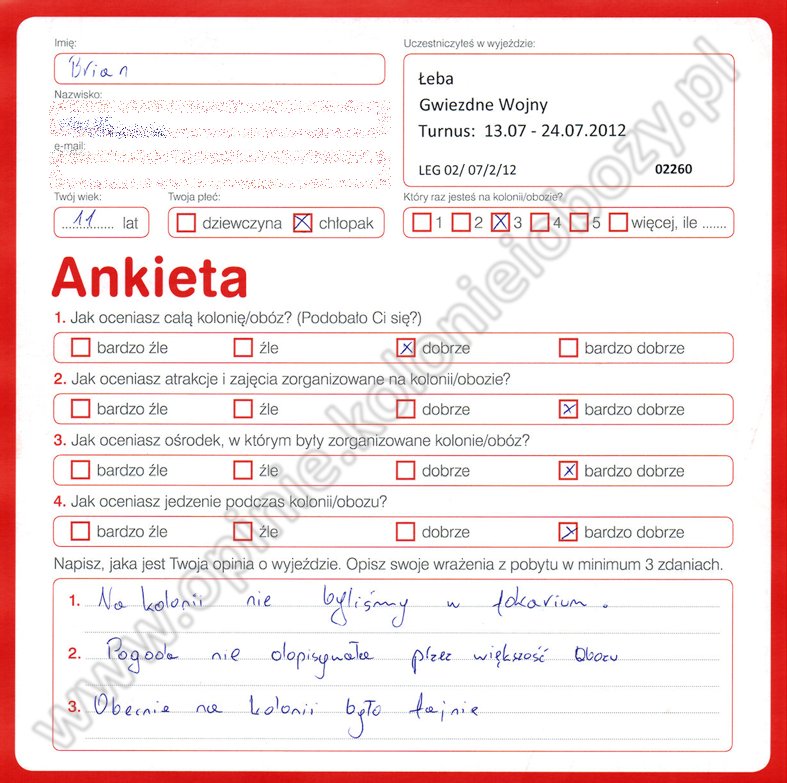 Imię:
Brian
Uczestniczyłeś w wyjeździe:
Łeba
Gwiezdne Wojny
Turnus: 13.07 - 24.07.2012
LEG 02/ 07/2/12 02260
Nazwisko:
e-mail:
Twój wiek:
11 lat
Twoja płeć:
dziewczyna chłopak
Który raz jesteś na kolonii/obozie?
1 2 3 4 5 więcej, ile .......
Ankieta
1. Jak oceniasz całą kolonię/obóz? (Podobało Ci się?)
bardzo źle źle dobrze bardzo dobrze
2. Jak oceniasz atrakcje i zajęcia zorganizowane na kolonii/obozie?
bardzo źle źle dobrze bardzo dobrze
3. Jak oceniasz ośrodek, w którym były zorganizowane kolonie/obóz?
bardzo źle źle dobrze bardzo dobrze
4. Jak oceniasz jedzenie podczas kolonii/obozu?
bardzo źle źle dobrze bardzo dobrze
Napisz, jaka jest Twoja opinia o wyjeździe. Opisz swoje wrażenia z pobytu w minimum 3 zdaniach.
1. Na kolonii nie byliśmy w fokarium.
2. Pogoda nie dopisywała przez większość Obozu
3. Obecnie na kolonii było fajnie
www.opinie.kolonieiobozy.pl